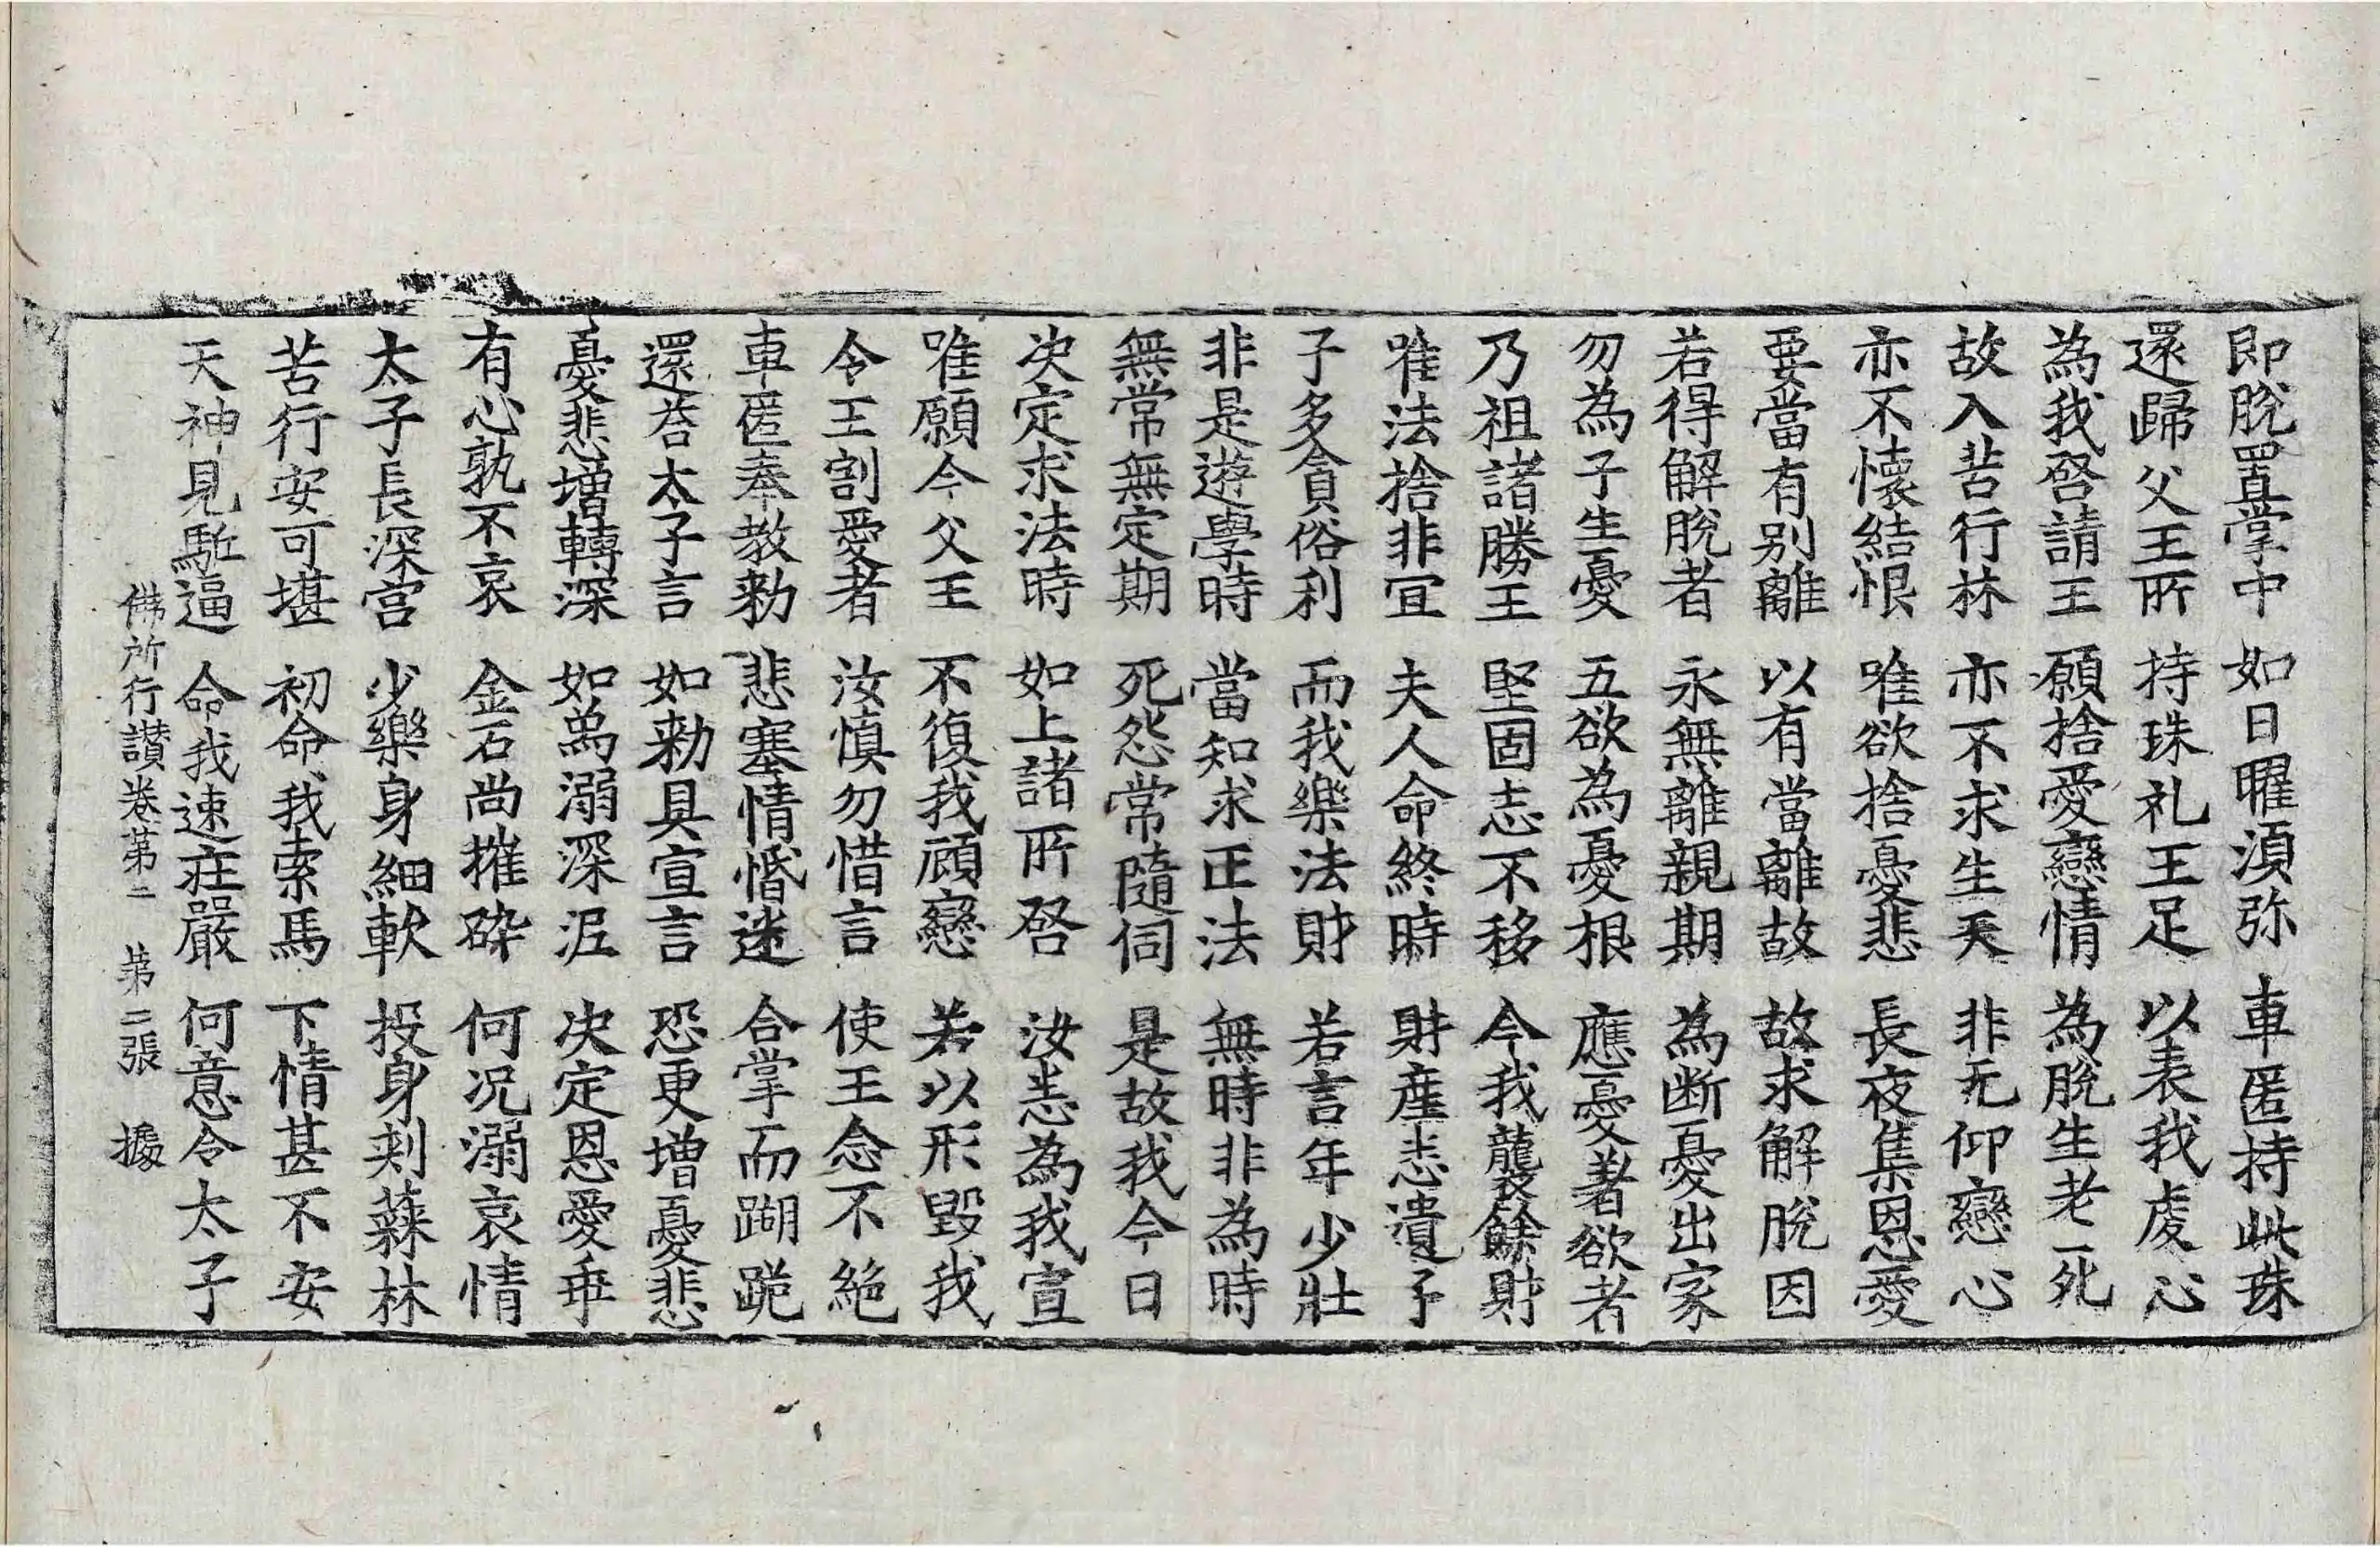 即脫置掌中 如日曜湏弥 車匿持此珠
還歸父王所 持珠礼王足 以表我虔心
為我啓請王 願捨愛戀情 為脫生老死
故入苦行林 亦不求生天 非无仰戀心
亦不懷結恨 唯欲捨憂悲 長夜集恩愛
要當有別離 以有當離故 故求解脫因
若得解脫者 永無離親期 為断憂出家
勿為子生憂 五欲為憂根 應憂著欲者
乃祖諸勝王 堅固志不移 今我襲餘財
唯法捨非宜 夫人命終時 財產悉遺子
子多貪俗利 而我樂法財 若言年少壯
非是遊學時 當知求正法 無時非為時
無常無定期 死怨常隨伺 是故我今日
决定求法時 如上諸所啓 汝悉為我宣
唯願今父王 不復我顧戀 若以形毀我
令王割愛者 汝慎勿惜言 使王念不絶
車匿奉教勑 悲塞情惛迷 合掌而蹦跪
還荅太子言 如勑具宣言 恐更增憂悲
憂悲增轉深 如象溺深泥 决定恩愛乖
有心孰不哀 金石尚摧碎 何况溺哀情
太子長深宫 少樂身細軟 投身刺蕀林
苦行安可堪 初命我索馬 下情甚不安
天神見駈逼 命我速莊嚴 何意令太子
佛所行讃卷第二 第二張 據